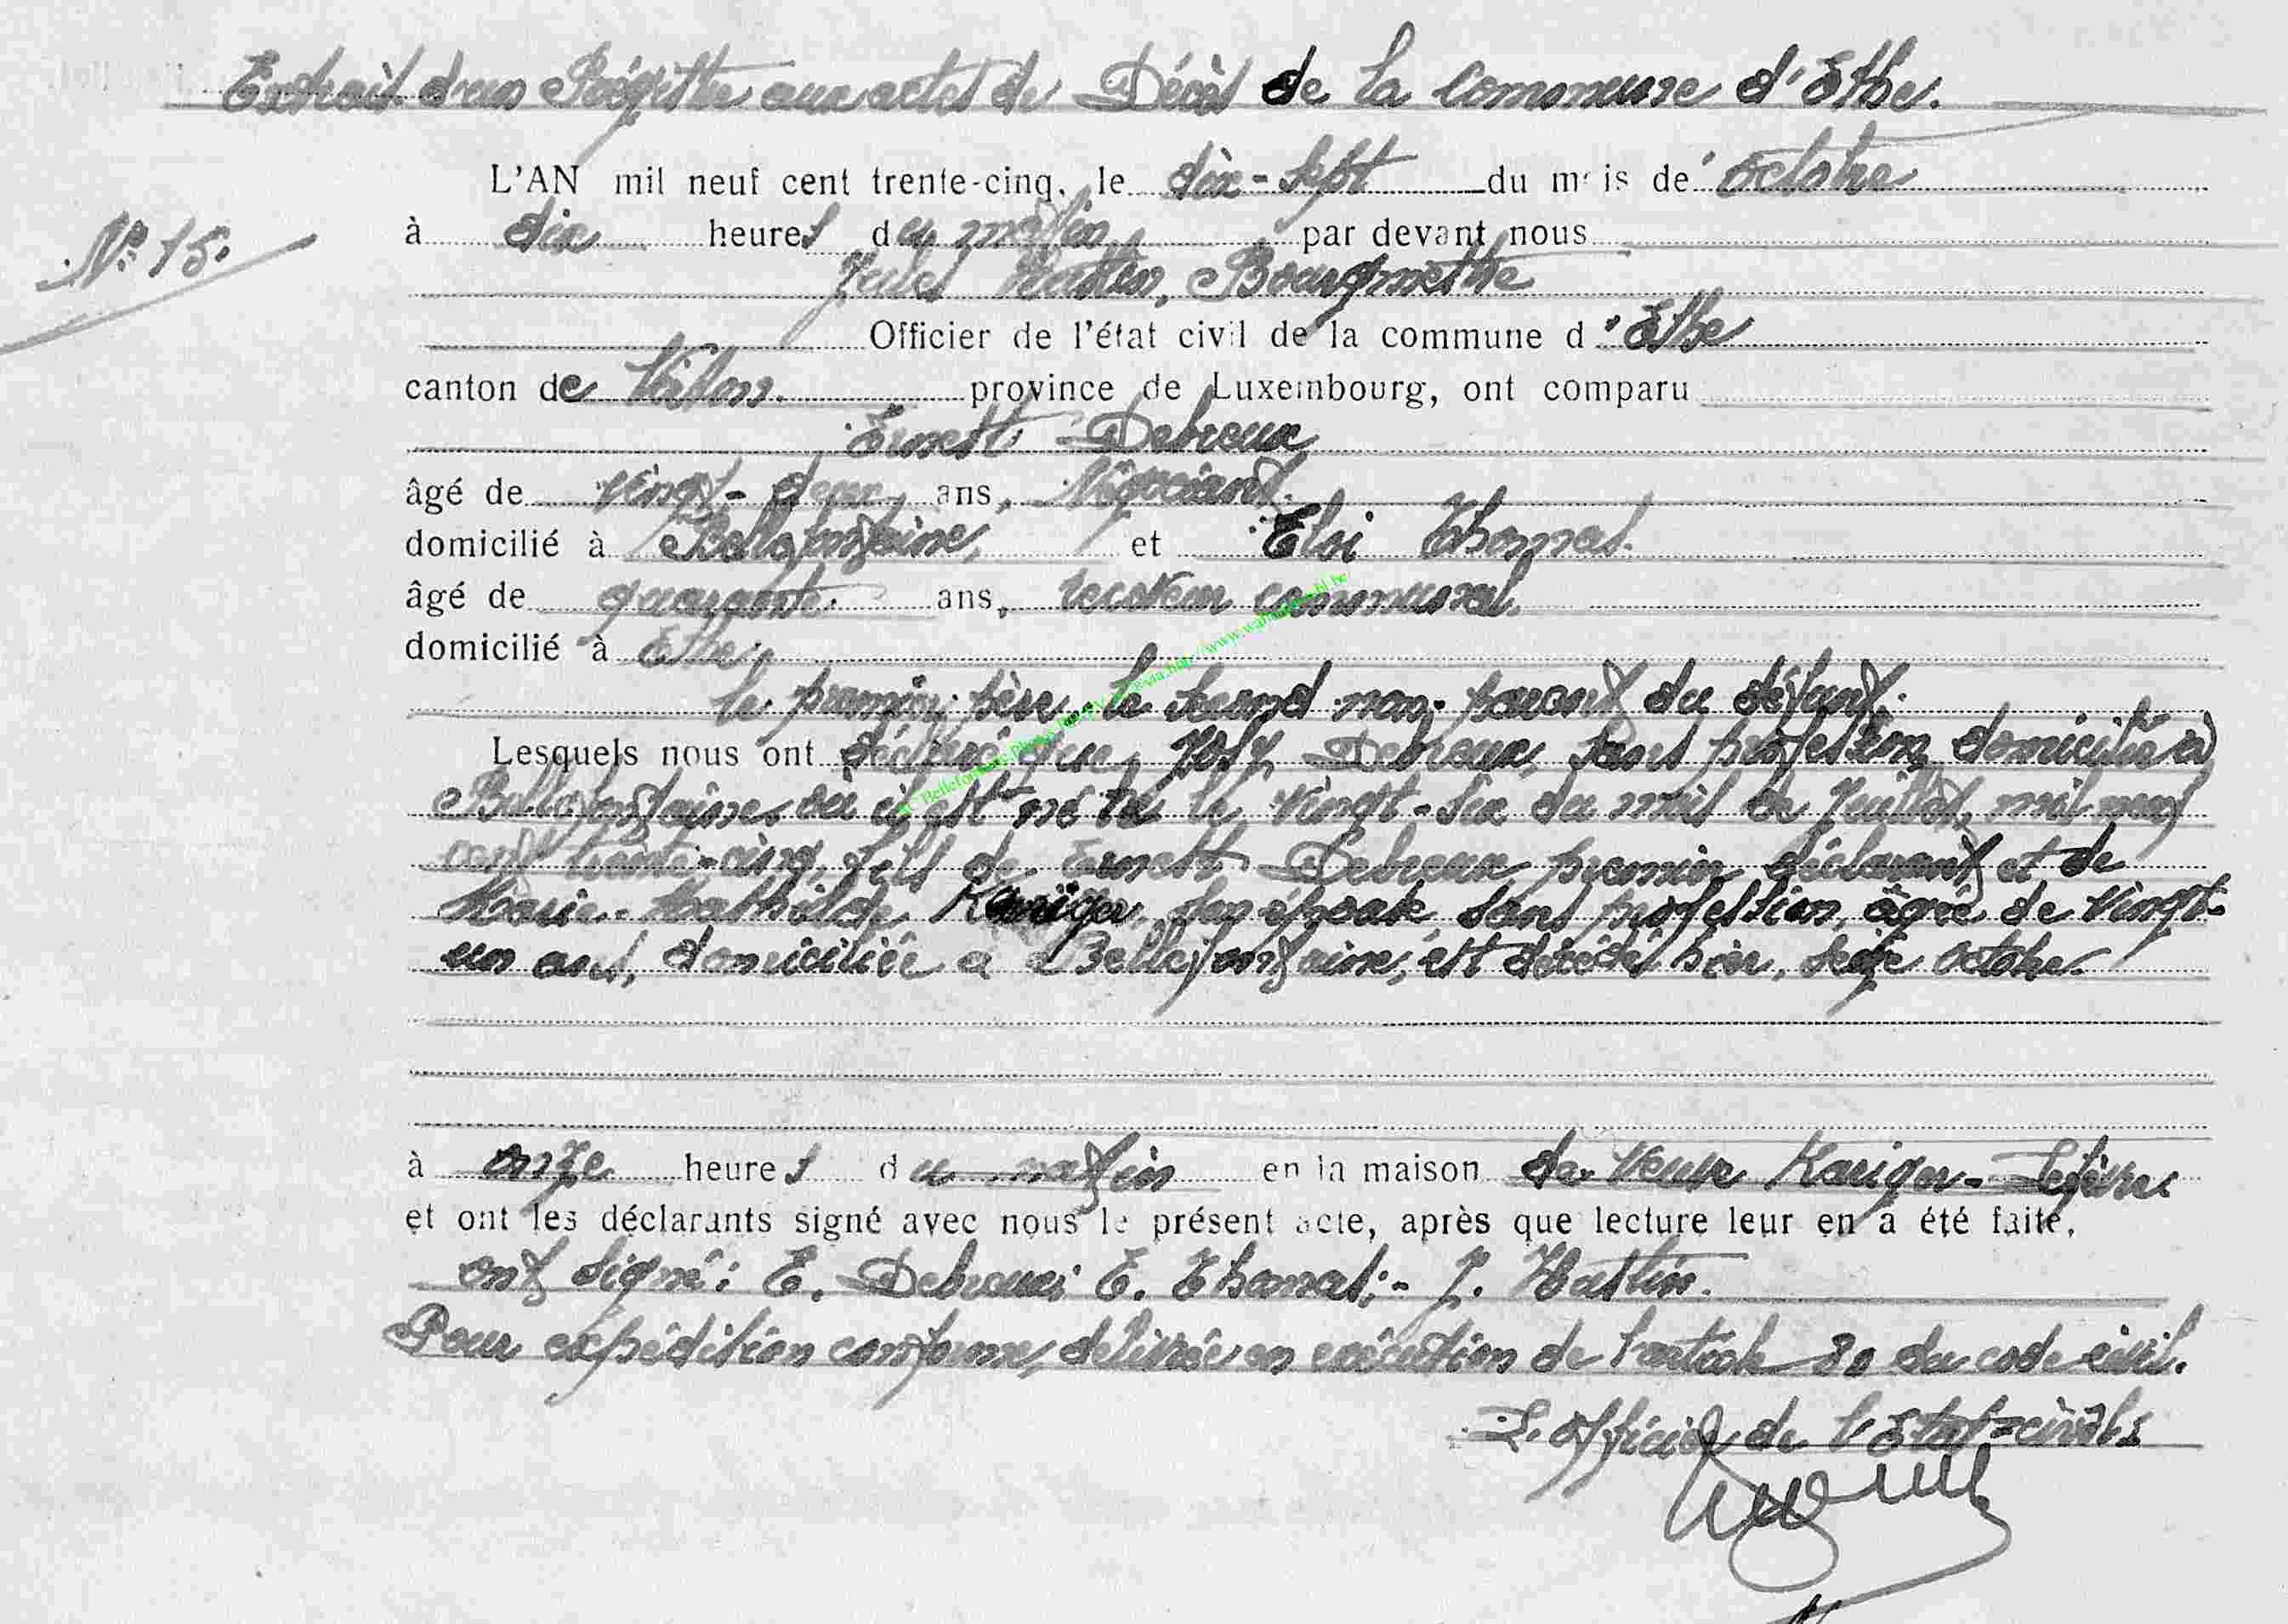 Extrait d'un Régistre aux actes de Décès de la Commune d'Ethe.
L'AN mil neuf cent trente-cinq, le dix-sept du mois de octobre
N° 15.
à dix heures du matin par devant nous
Jules Hastin, Bourgmestre
Officier de l'état civil de la commune d'Ethe
canton de Virton. province de Luxembourg, ont comparu
Ernest Debreux
âgé de vingt-deux ans, Négociant.
domicilié à Bellefontaine, et Eloi Thomas.
âgé de quarante ans, receveur communal,
domicilié à Ethe,
le premier père, le second non-parent du défunt.
Lesquels nous ont déclaré que Debreux, sans profession, domicilié à
Bellefontaine où il est né le vingt-six du mois de Juillet, mil neuf
cent trente-cinq, fils de Ernest Debreux premier déclarant et de
Marie-Mathilde Kariger, son épouse, sans profession, âgée de vingt-
un ans, domiciliée à Bellefontaine, est décédé hier, seize octobre.
à onze heures du matin en la maison de veuve Kariger-Lefèvre.
et ont les déclarants signé avec nous le présent acte, après que lecture leur en a été faite,
ont signé: E. Debreux; E. Thomas; - J. Hastin.
Pour expédition conforme, délivrée en exécution de l'article 80 du code civil.
L'officier de l'Etat-civil: